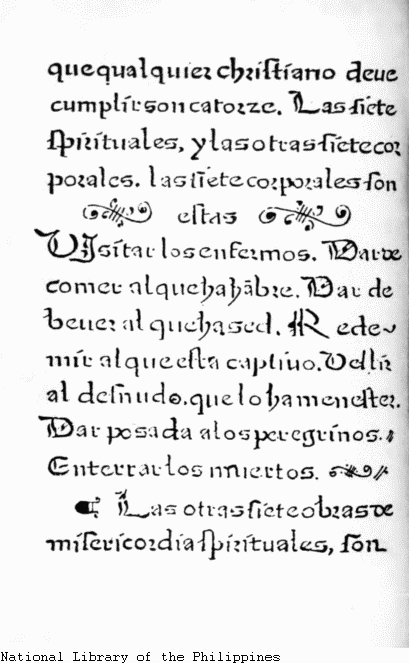 que qual quier chriſtiano deue
cumplir son catorze. Las ſiete
ſpirituales, y las otras ſiete cor
porales. las ſiete corporales ſon
eſtas
Viſitar los enfermos. Dar de
comer al que ha hãbre. Dar de
beuer al que ha sed. Rede-
mir al que eſta captiuo. Veſtir
al deſnudo. que lo ha meneſter.
Dar posada a los peregrinos.
Enterrar los muertos.
¶ Las otras ſiete obras de
miſericordia ſpirituales, ſon
National Library of the Philippines